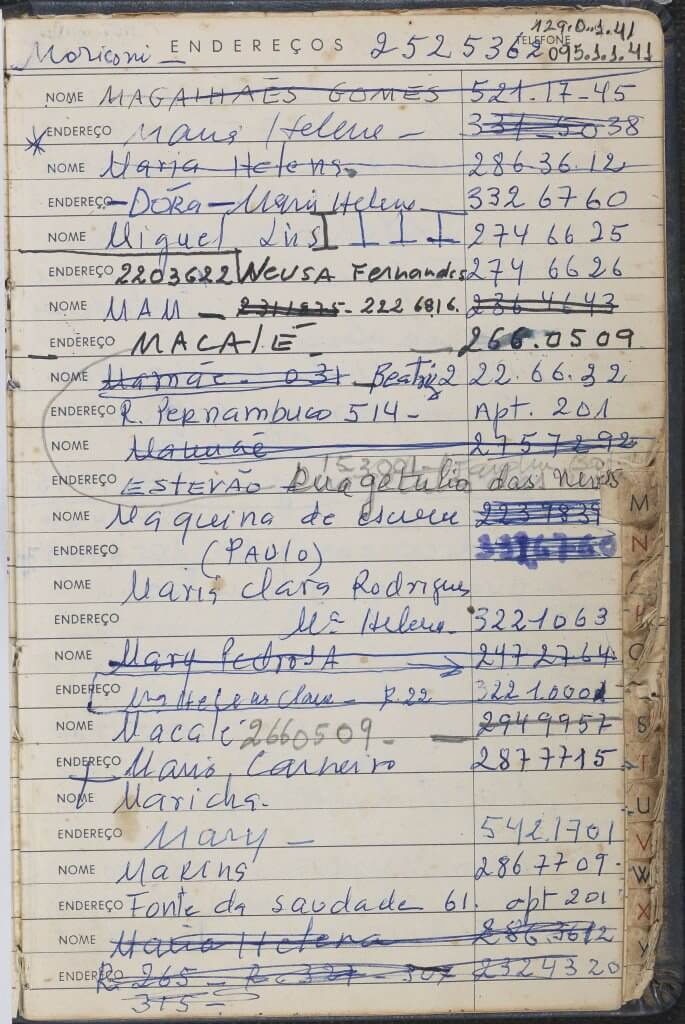 129.0.1.41
Moriconi — ENDEREÇOS 2525362 TELEFONE 095.1.1.41
NOME MAGALHAÊS GOMES 521.17-45
ENDEREÇO Maria Helena — 331-5038
NOME Maria Helena 286 36.12
ENDEREÇO — DÓRA — Maria Helena 332 6760
NOME Miguel 274 66 25
ENDEREÇO 2203622 NEUSA Fernandes 274 66 26
NOME MAM — 222 6816. 286 4643
ENDEREÇO MACALÉ 266.0509
NOME Mamãe - 031 Beatriz 222.66.32
ENDEREÇO R. Pernambuco 514 - Apt. 201
NOME Mamãe 2757292
ENDEREÇO ESTEVÃO das Neves
NOME Maquina de 2237839
ENDEREÇO (PAULO) 3326760
NOME Maria Clara Rodrigues
ENDEREÇO Mª Helena 3221063
NOME Mary Pedrosa 2472764
ENDEREÇO Mª Helena R. 22 322 1.0001
NOME Macalé 2660509 - 2949957
ENDEREÇO Mario Carneiro 2877715
NOME Maricha.
ENDEREÇO Mary — 542.1701
NOME Marina 286 7709.
ENDEREÇO Fonte da saudade 61. apt 201
NOME Maria Helena 286.3612
ENDEREÇO R. 265 — R. 327 - 307 2324320
315 —
M
N
O
S
T
U
V
W
X
Y